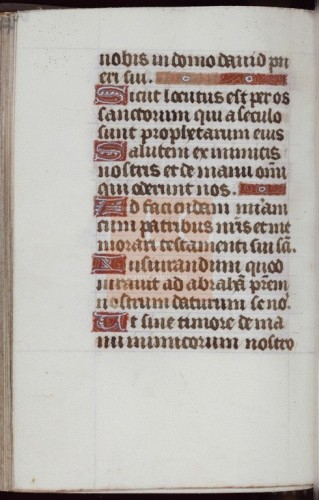 nobis in domo dauid pu
eri sui.
Sicut locutus est per os
sanctorum qui a seculo
sunt prophetarum eius
Salutem ex inimicis
nostris et de manu omĩ
qui oderunt nos.
Ad faciendam miam̃
cum patribus nr̃is et me
morari testamenti sui sã.
Iusiurandum quod
iurauit ad abrahã prẽm
nostrum daturum se no.
Ut sine timore de ma
nu inimicorum nostro